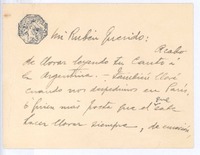 Mi Rubén Querido:
Acabo
de llorar leyendo tu Canto á
la Argentina. — También lloré
cuando nos despedimos en París,
ó fuiera más poeta que el que sabe
hacer llorar siempre, de emoción